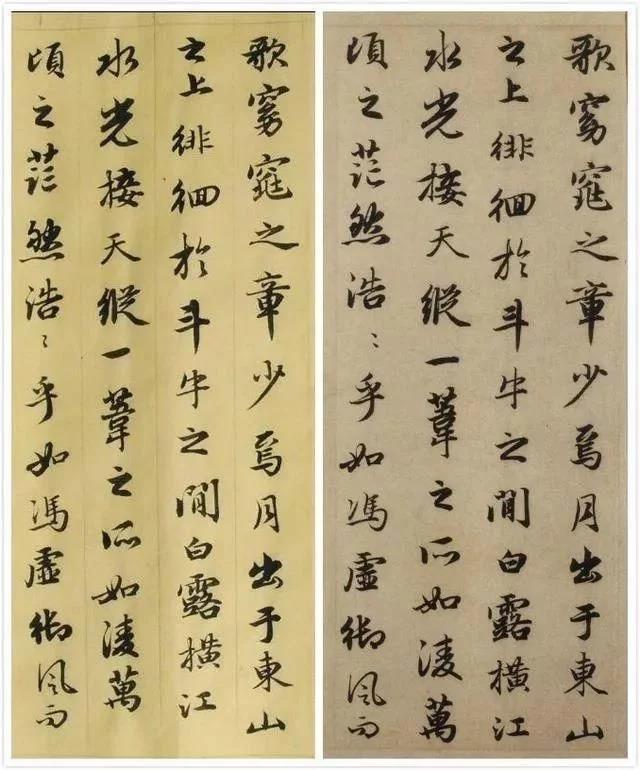 歌窈窕之章少焉月出于東山
之上徘徊於斗牛之間白露橫江
水光接天縱一葦之所如淩萬
頃之茫然浩〻乎如馮虛御風而
歌窈窕之章少焉月出于東山
之上徘徊於斗牛之間白露橫江
水光接天縱一葦之所如淩萬
頃之茫然浩〻乎如馮虛御風而